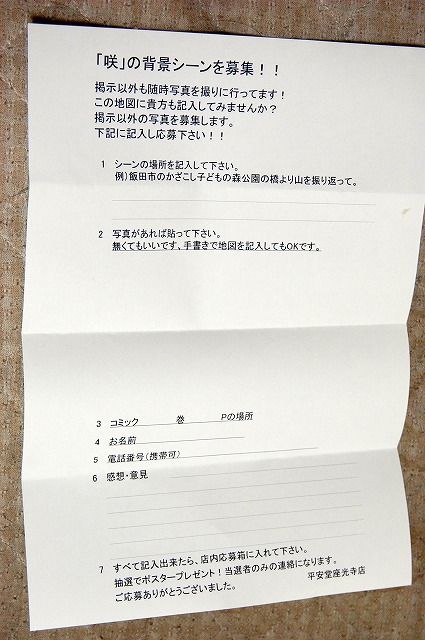 「咲」の背景シーンを募集！！
掲示以外も随時写真を撮りに行ってます！
この地図に貴方も記入してみませんか？
掲示以外の写真を募集します。
下記に記入し応募下さい！！
1 シーンの場所を記入して下さい。
例）飯田市のかざこし子どもの森公園の橋より山を振り返って。
2 写真があれば貼って下さい。
無くてもいいです、手書きで地図を記入してもOKです。
3 コミック 巻 Pの場所
4 お名前
5 電話番号（携帯可）
6 感想・意見
7 すべて記入出来たら、店内応募箱に入れて下さい。
抽選でポスタープレゼント！当選者のみの連絡になります。
ご応募ありがとうございました。 平安堂座光寺店